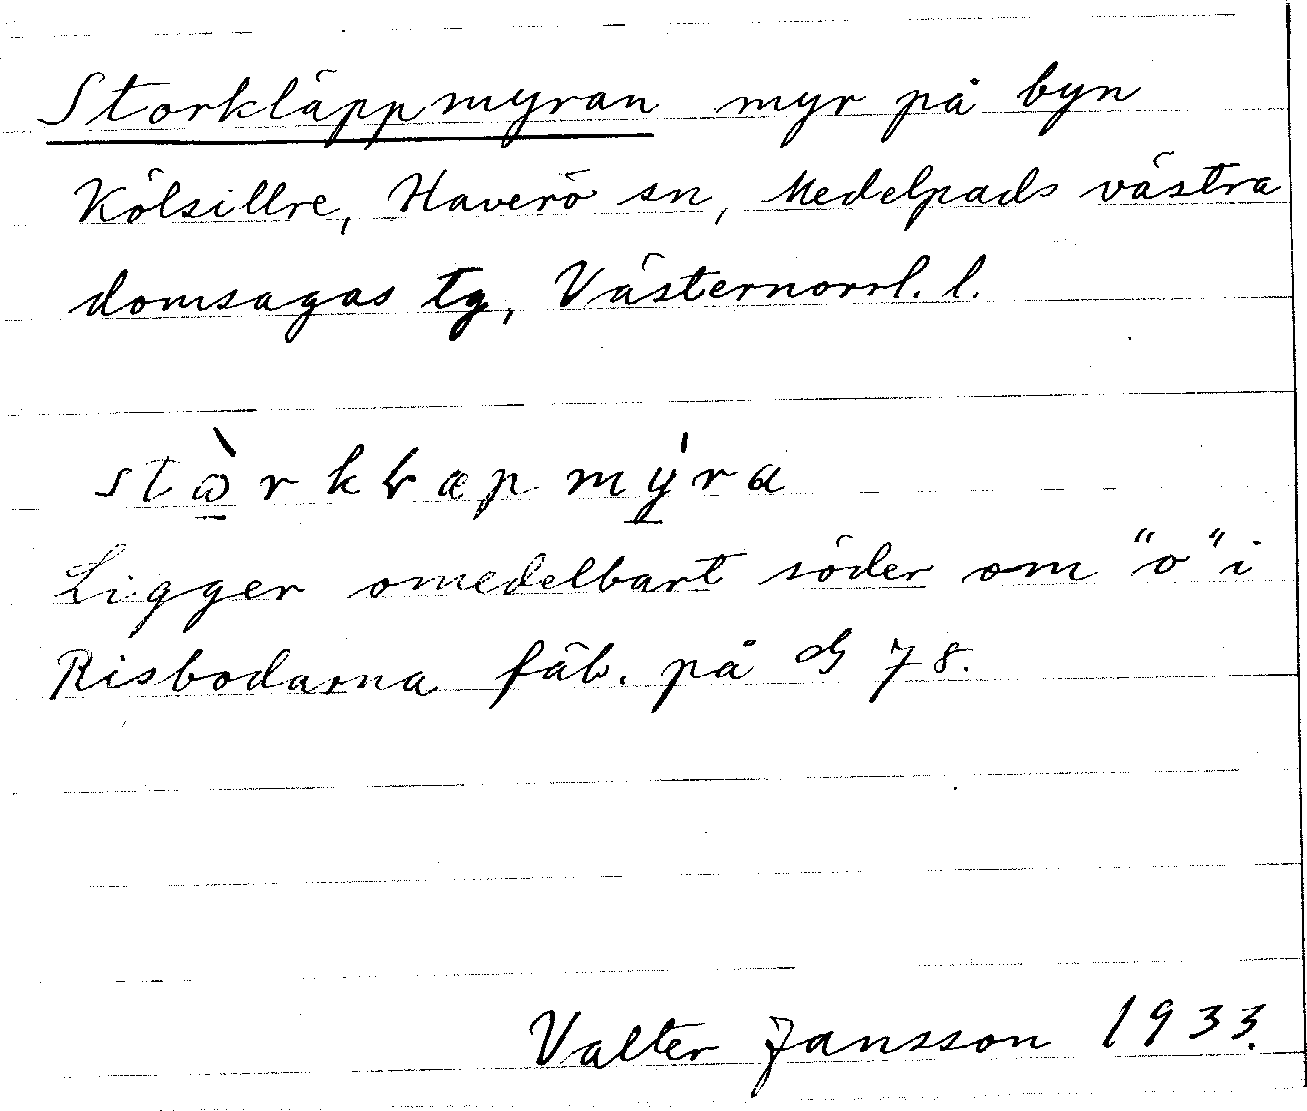 Storkläppmyran myr på byn
Kölsillre, Haverö sn, Medelpads västra
domsagas tg, Västernorrl. l.
Ligger omedelbart söder om "o" i
Risbodarna fäb. på G 78.
Valter Jansson 1933.